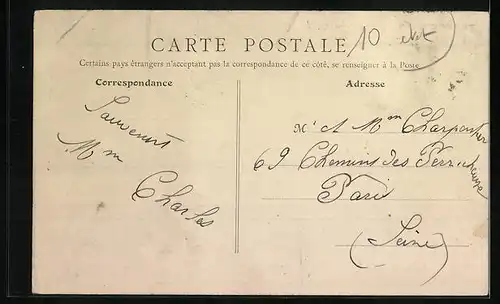 CARTE POSTALE
10
Certains pays étrangers n'acceptant pas la correspondance de ce côté, se renseigner à la Poste
Correspondance
Souvenir
Mm
Charles
Adresse
Mr et Mm Charpentier
69 Chemins des
Paris
(Seine)